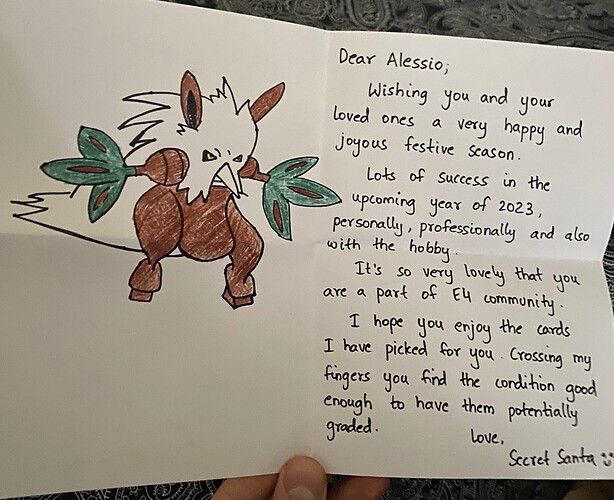 Dear Alessio;
Wishing you and your
loved ones a very happy and
joyous festive season.
Lots of success in the
upcoming year of 2023,
personally, professionally and also
with the hobby.
It's so very lovely that you
are a part of E4 community.
I hope you enjoy the cards
I have picked for you. Crossing my
fingers you find the condition good
enough to have them potentially
graded.
Love,
Secret Santa